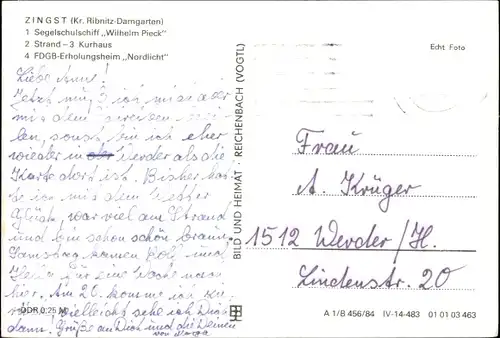 ZINGST (Kr. Ribnitz-Damgarten)
1 Segelschulschiff „Wilhelm Pieck"
2 Strand – 3 Kurhaus
4 FDGB-Erholungsheim „Nordlicht"
Echt Foto
Liebe Anne!
Jetzt muß ich mich aber
mit dem Schreiben
len, sonst bin ich eher
wieder in Werder als die
Karte dort ist. Bisher hat-
te ich mit dem Wetter
Glück, war viel am Strand
und bin schon schön braun.
Samstag kamen und
für eine Woche nach
hier. Am 20. komme ich zu-
rück. Vielleicht sehe ich Dich
dann! Grüße an Dich und die Deinen
von
DDR 0:25 M
BILD UND HEIMAT · REICHENBACH (VOGTL)
Frau
A. Krüger
1512 Werder/H.
Lindenstr. 20
A 1/B 456/84 IV-14-483 01 01 03 463